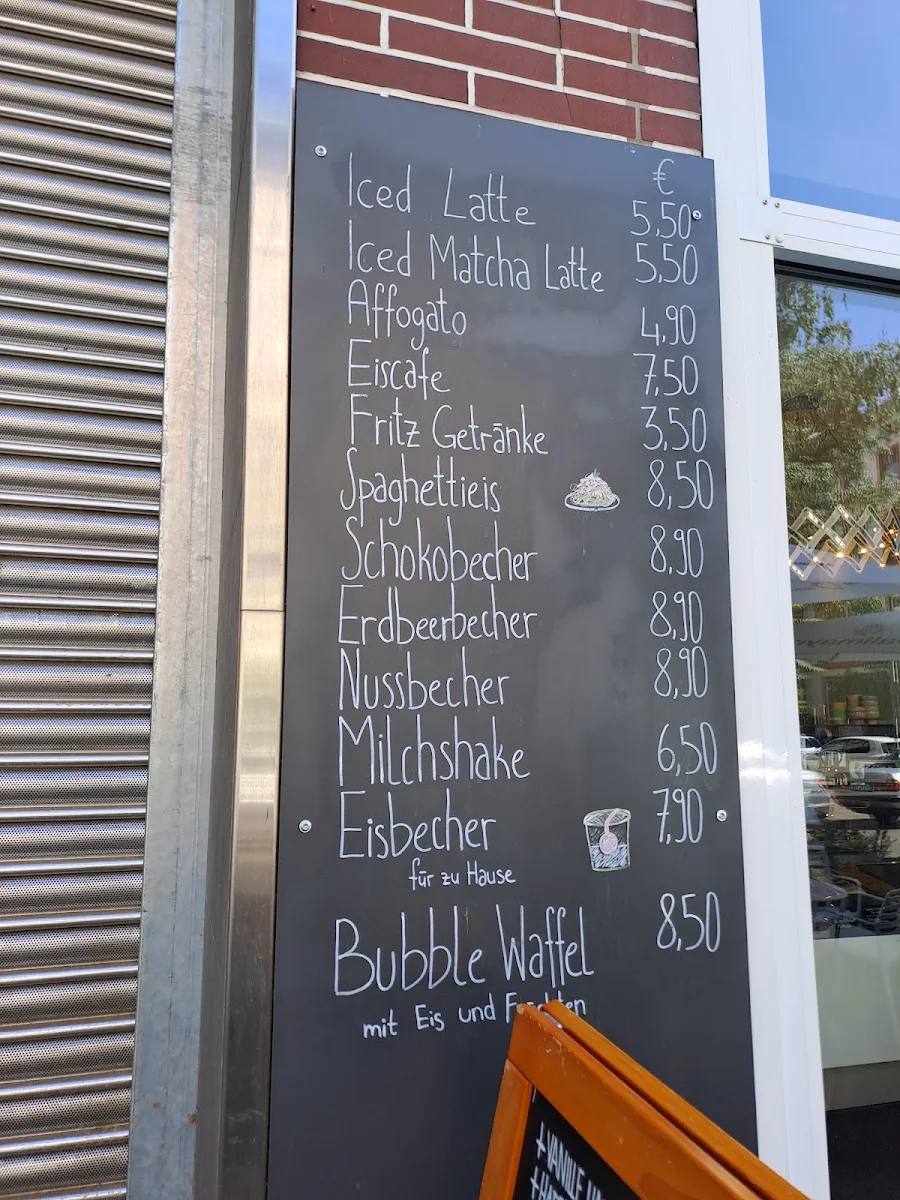 €
Iced Latte 5,50
Iced Matcha Latte 5,50
Affogato 4,90
Eiscafe 7,50
Fritz Getränke 3,50
Spaghettieis 8,50
Schokobecher 8,90
Erdbeerbecher 8,90
Nussbecher 8,90
Milchshake 6,50
Eisbecher 7,90
für zu Hause
Bubble Waffel 8,50
mit Eis und
+VANILLE